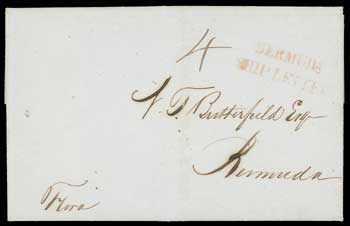 4
BERMUDA
SHIP LETTER
N. T. Butterfield Esqr
Bermuda
Flora